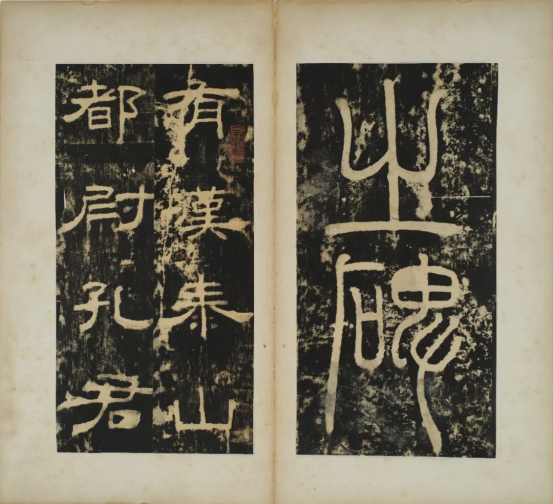 之碑
有漢泰山
都尉孔君